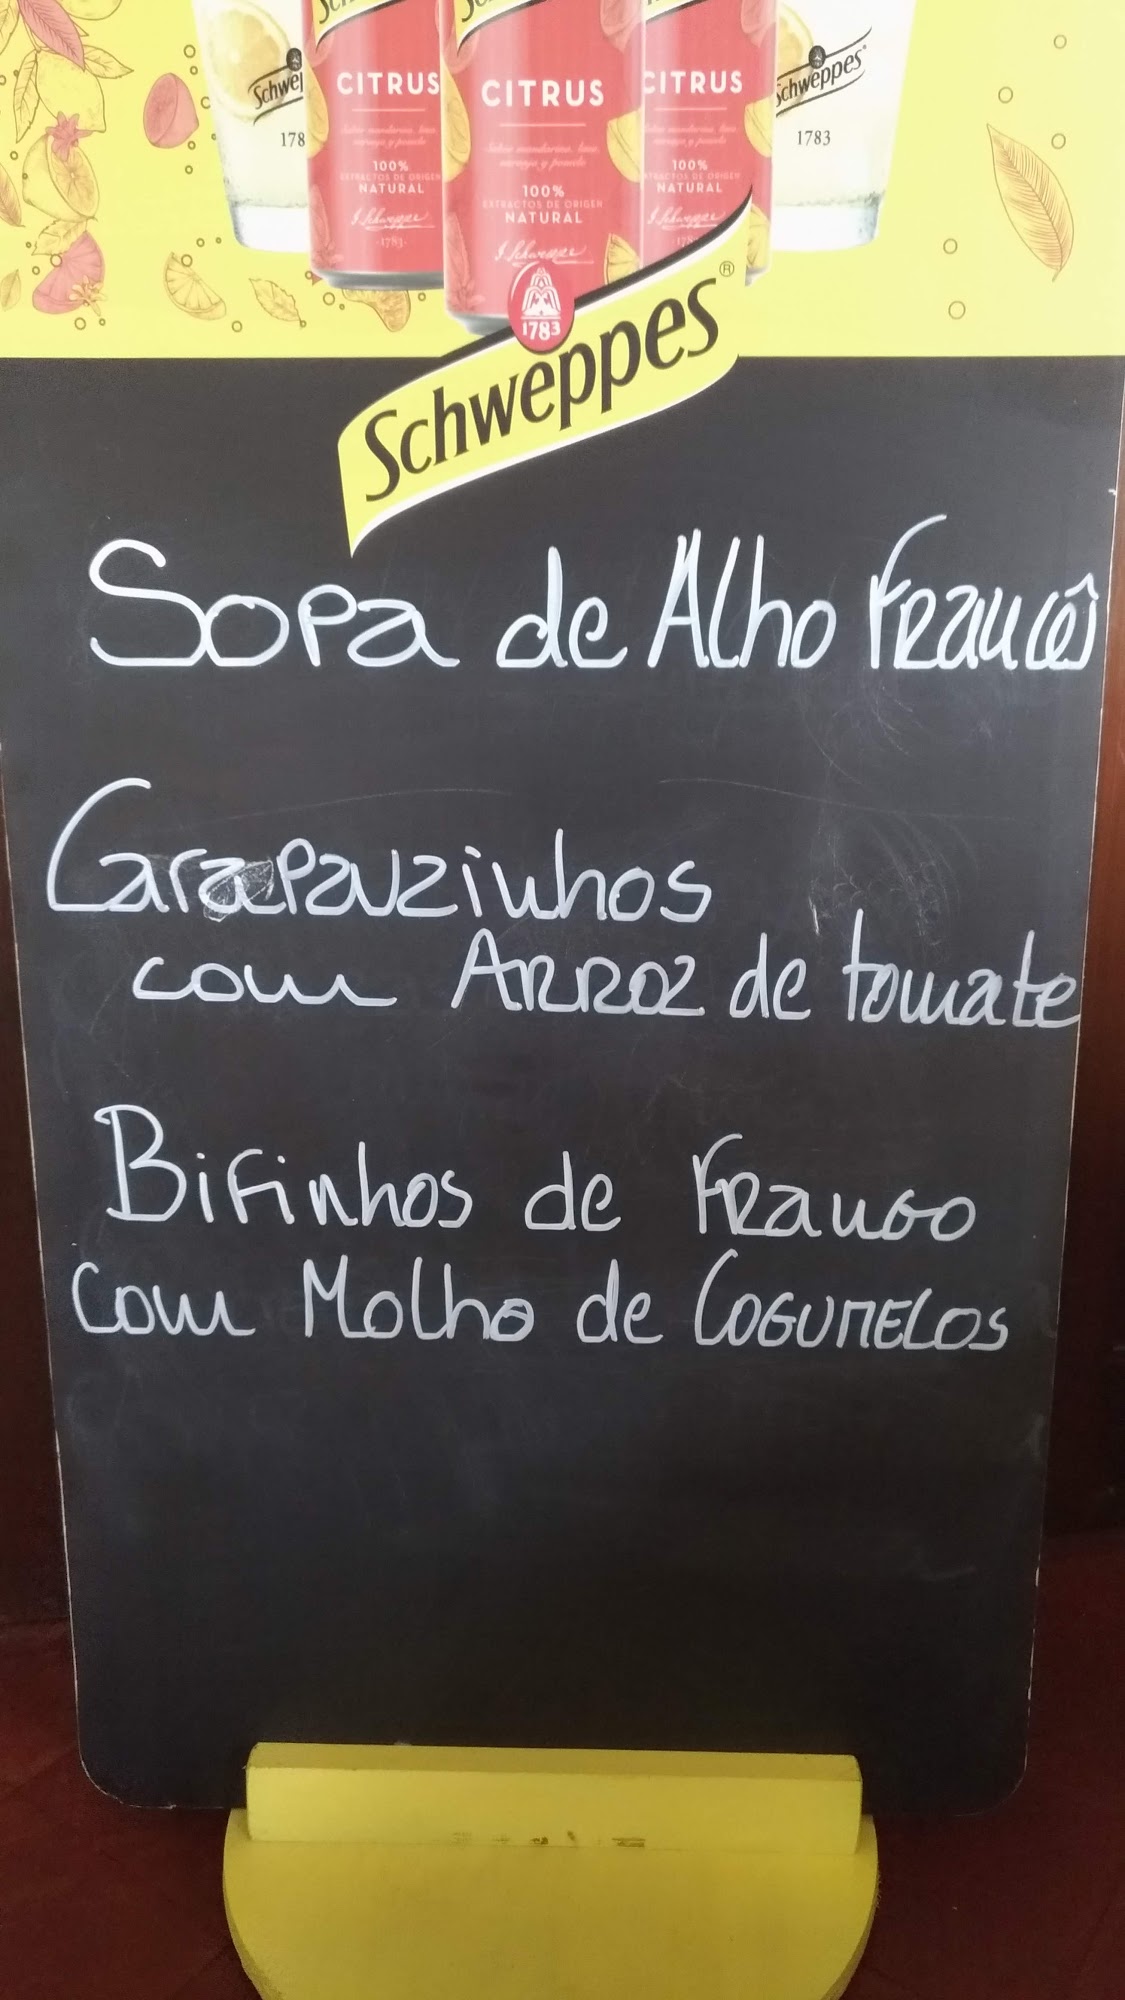 Schweppes
1783
CITRUS
Sabor mandarina, lima,
naranja y pomelo
100%
EXTRACTOS DE ORIGEN
NATURAL
J. Schweppe
·1783·
CITRUS
Sabor mandarina, lima,
naranja y pomelo
100%
EXTRACTOS DE ORIGEN
NATURAL
J. Schweppe
CITRUS
100%
EXTRACTOS DE ORIGEN
NATURAL
J. Schweppe
Schweppes
1783
1783
Schweppes®
Sopa de Alho Francês
Carapauzinhos
com ARROZ de tomate
Bifinhos de Frango
Com Molho de COGUMELOS